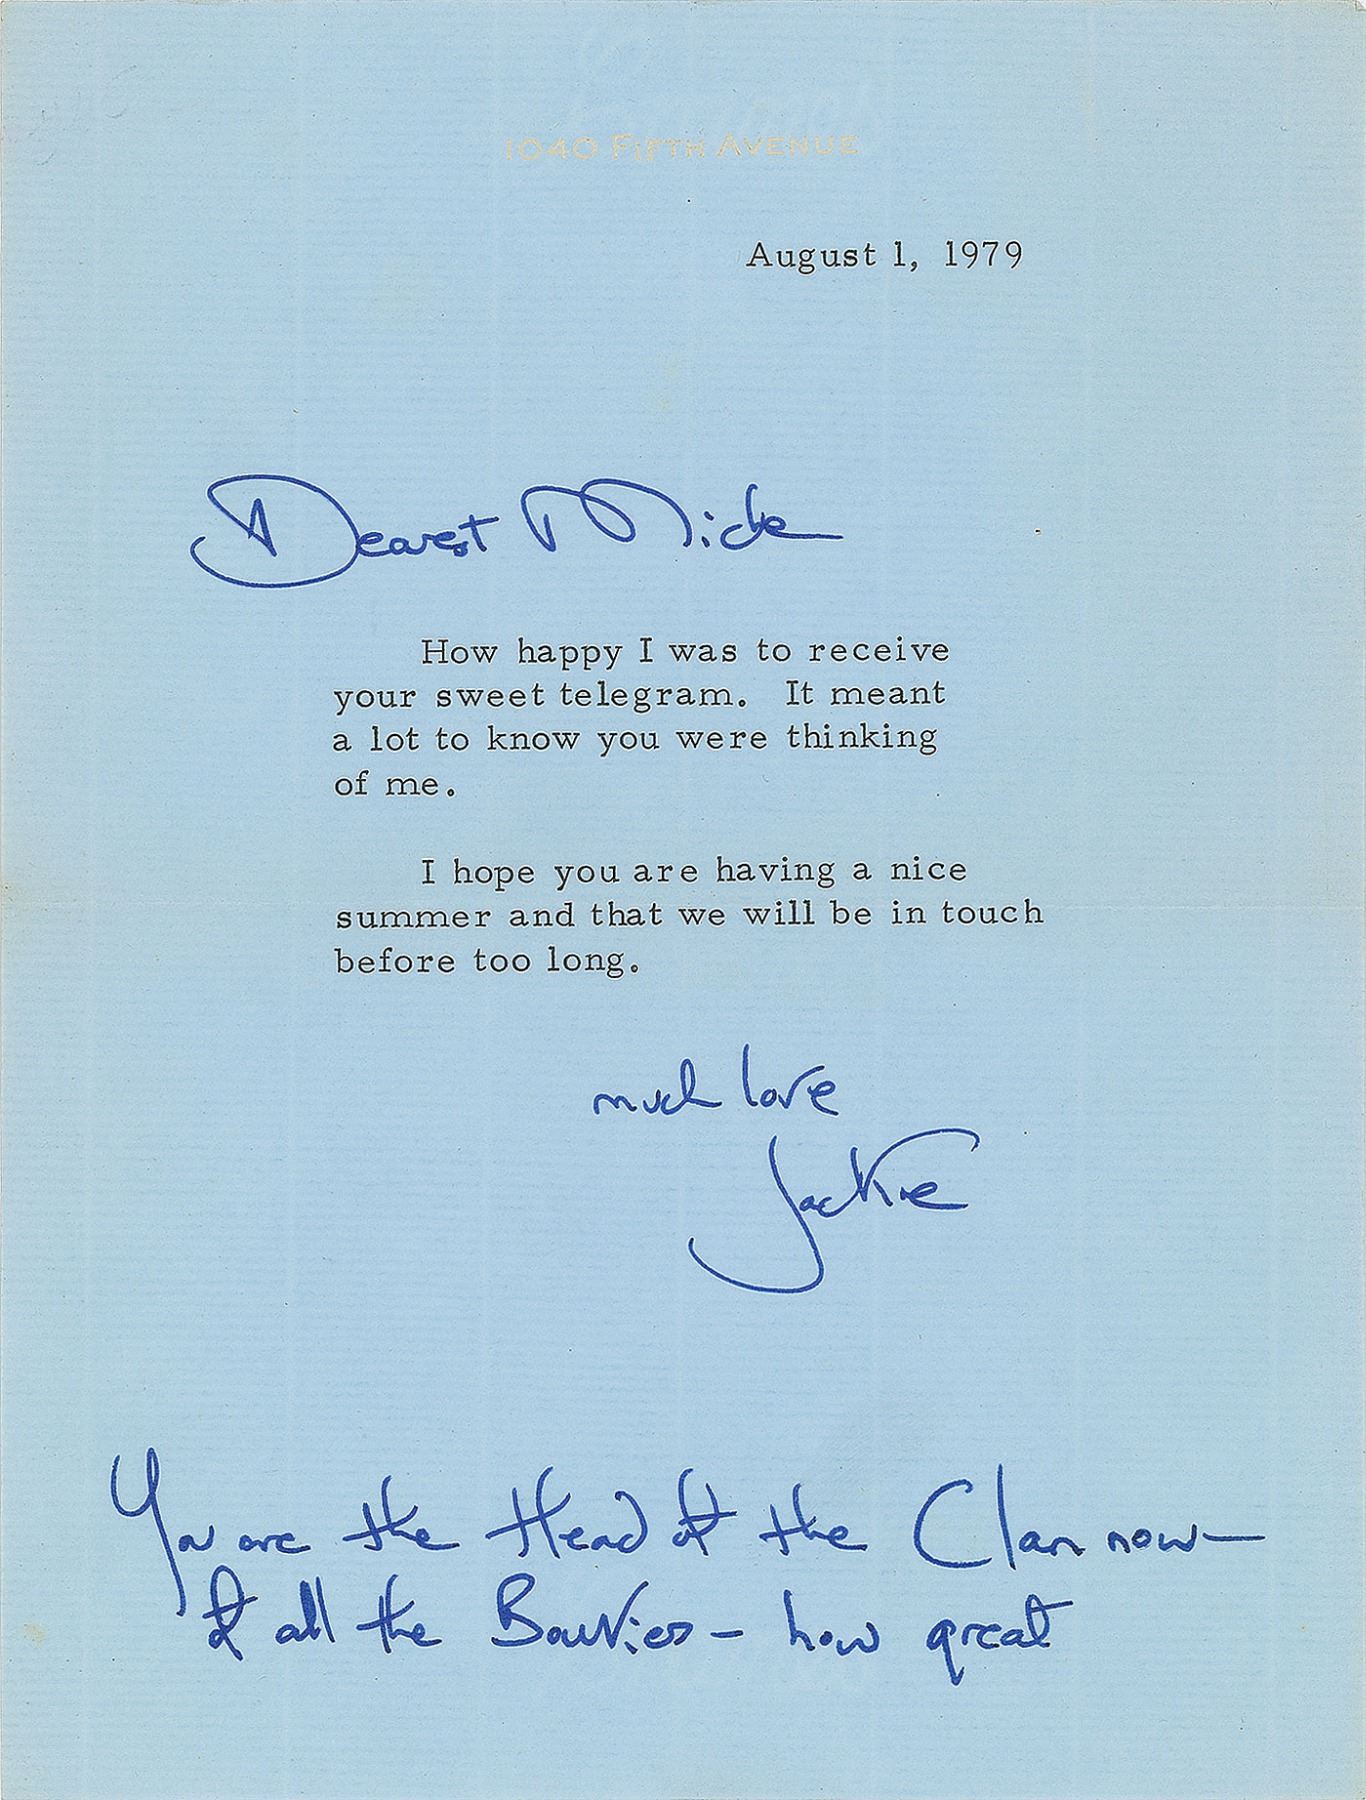 1040 FIFTH AVENUE
August 1, 1979
Dearest Miche
How happy I was to receive
your sweet telegram. It meant
a lot to know you were thinking
of me.
I hope you are having a nice
summer and that we will be in touch
before too long.
much love
Jackie
You are the Head of the Clan now—
of all the Bouviers - how great